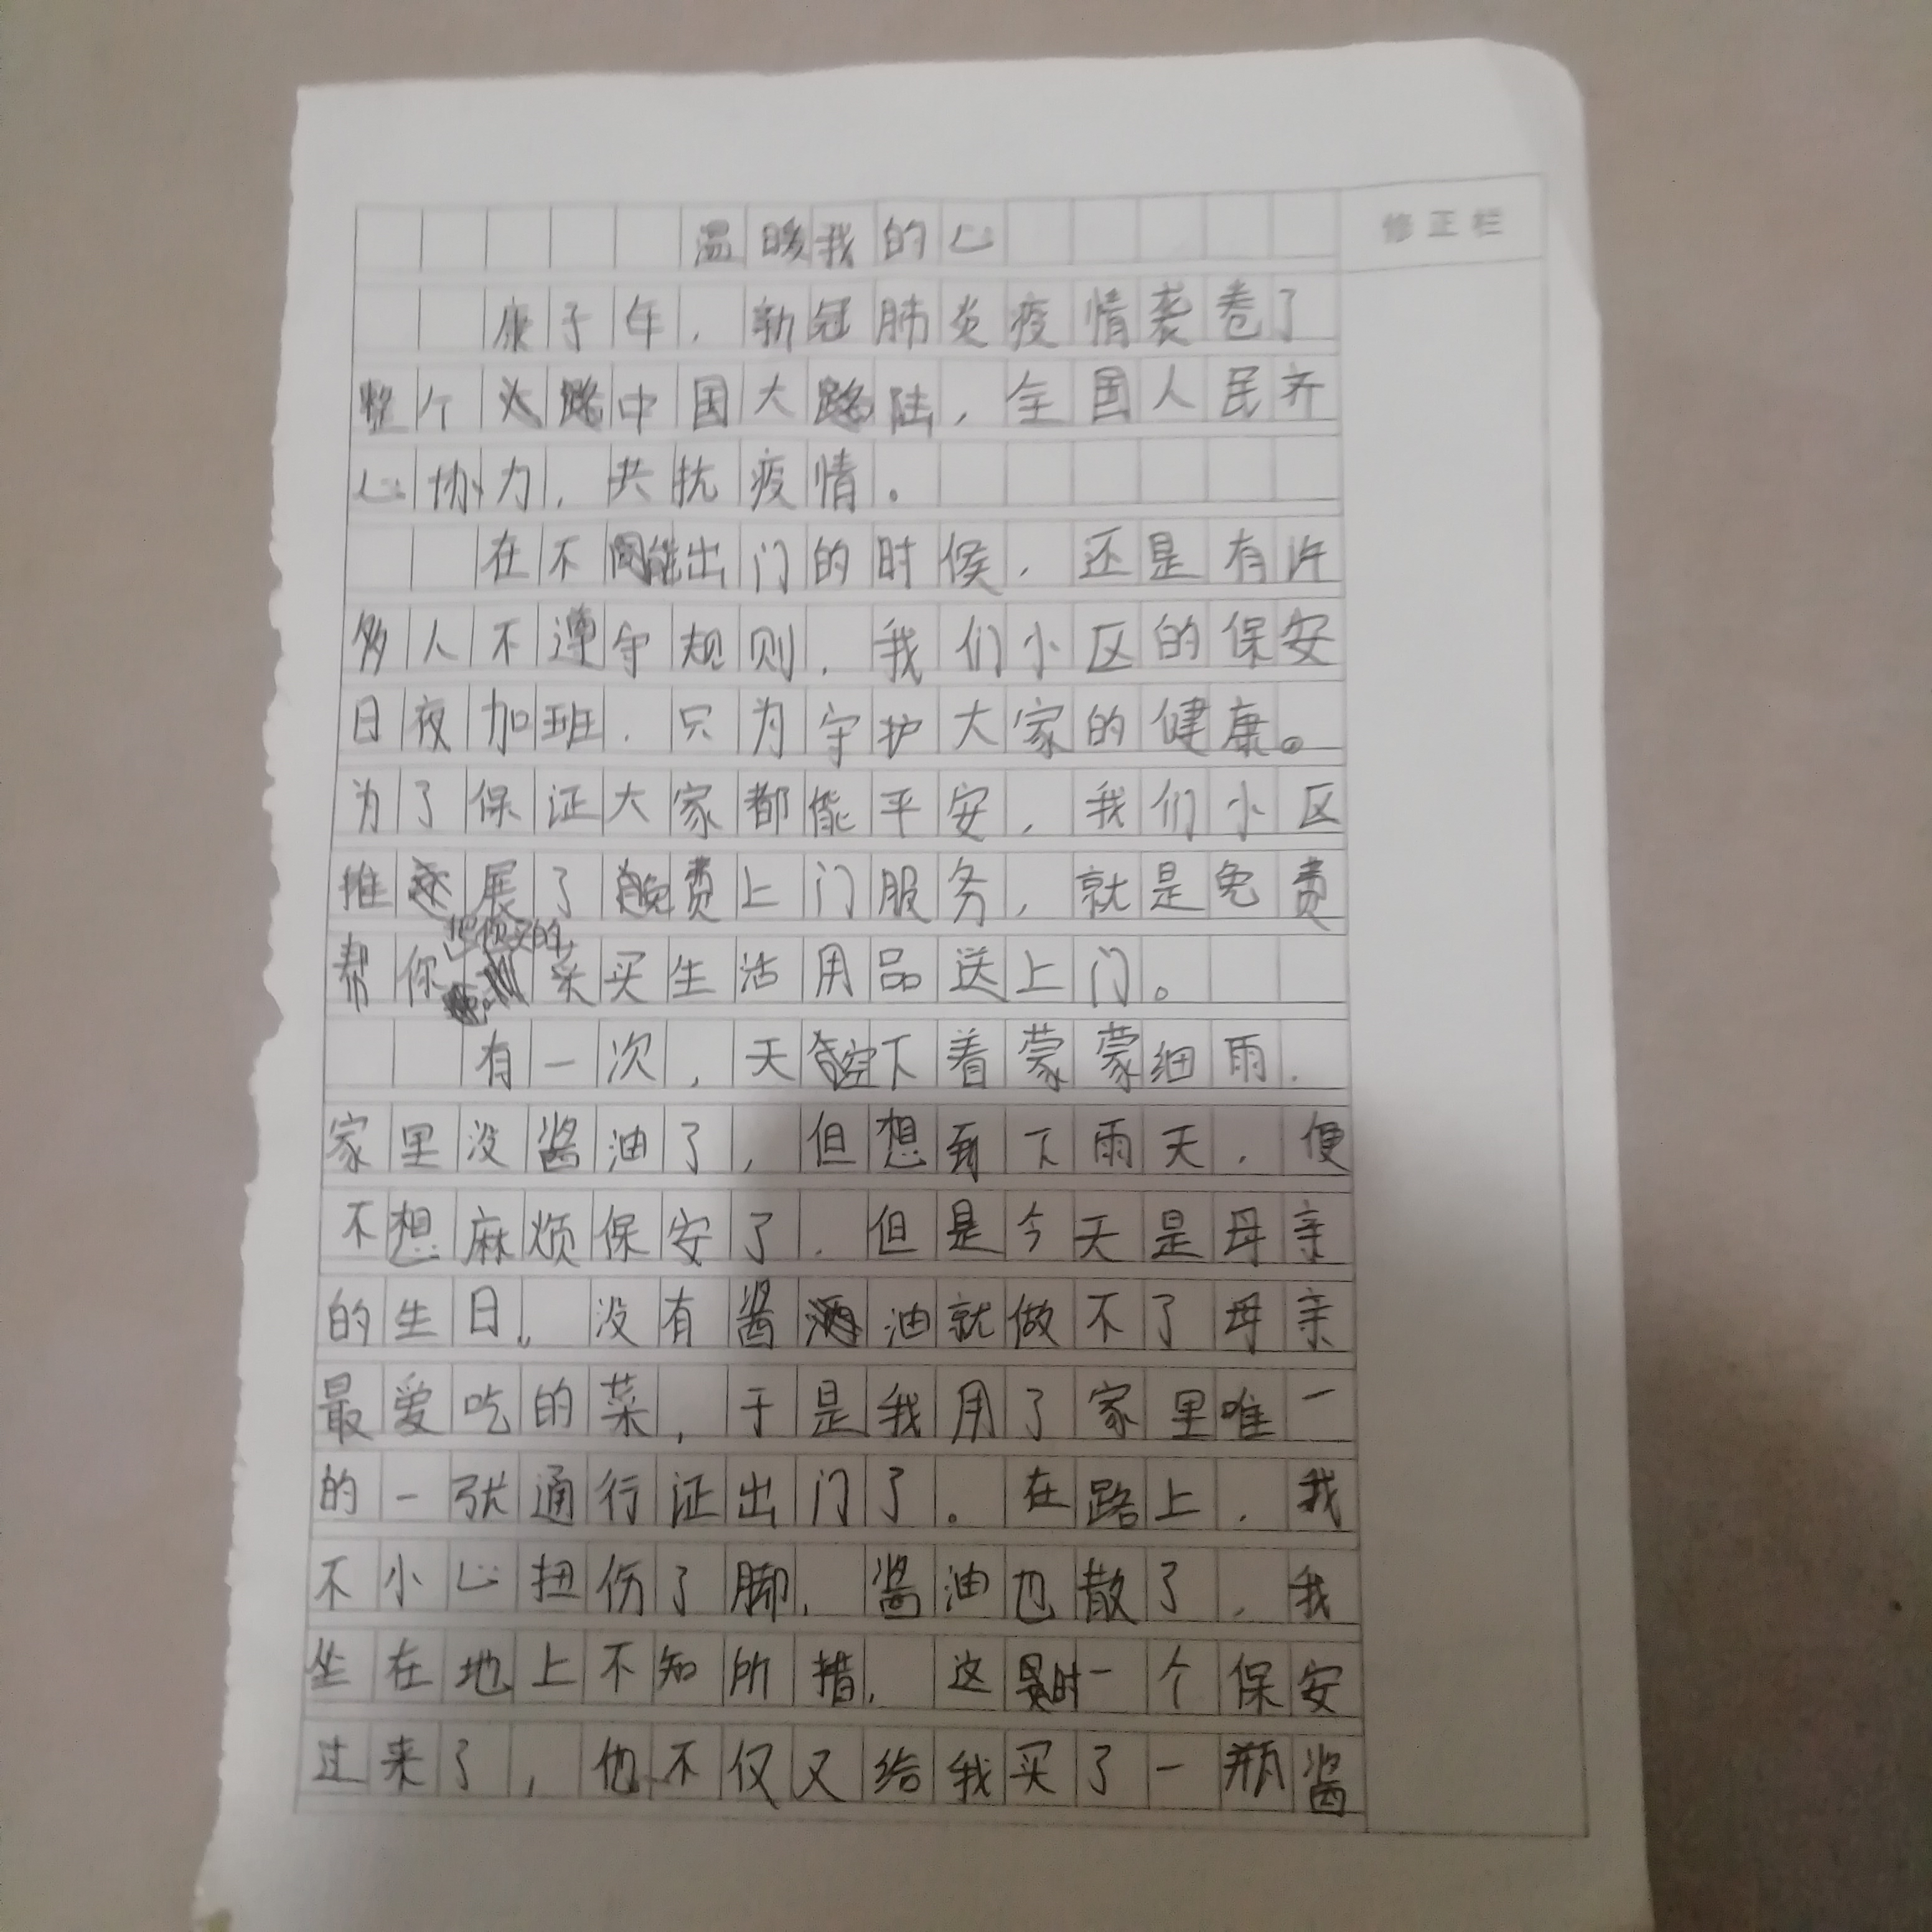 温暖我的心
修正栏
庚子年，新冠肺炎疫情袭卷了
整个中国大陆，全国人民齐
心协力，共抗疫情。
在不能出门的时候，还是有许
多人不遵守规则，我们小区的保安
日夜加班，只为守护大家的健康。
为了保证大家都能平安，我们小区
推展了免费上门服务，就是免费
帮你把你买的
菜买生活用品送上门。
有一次，天空下着蒙蒙细雨，
家里没酱油了，但想到下雨天，便
不想麻烦保安了，但是今天是母亲
的生日，没有酱油就做不了母亲
最爱吃的菜，于是我用了家里唯一
的一张通行证出门了。在路上，我
不小心扭伤了脚，酱油也散了，我
坐在地上不知所措，这时一个保安
过来了，他不仅又给我买了一瓶酱